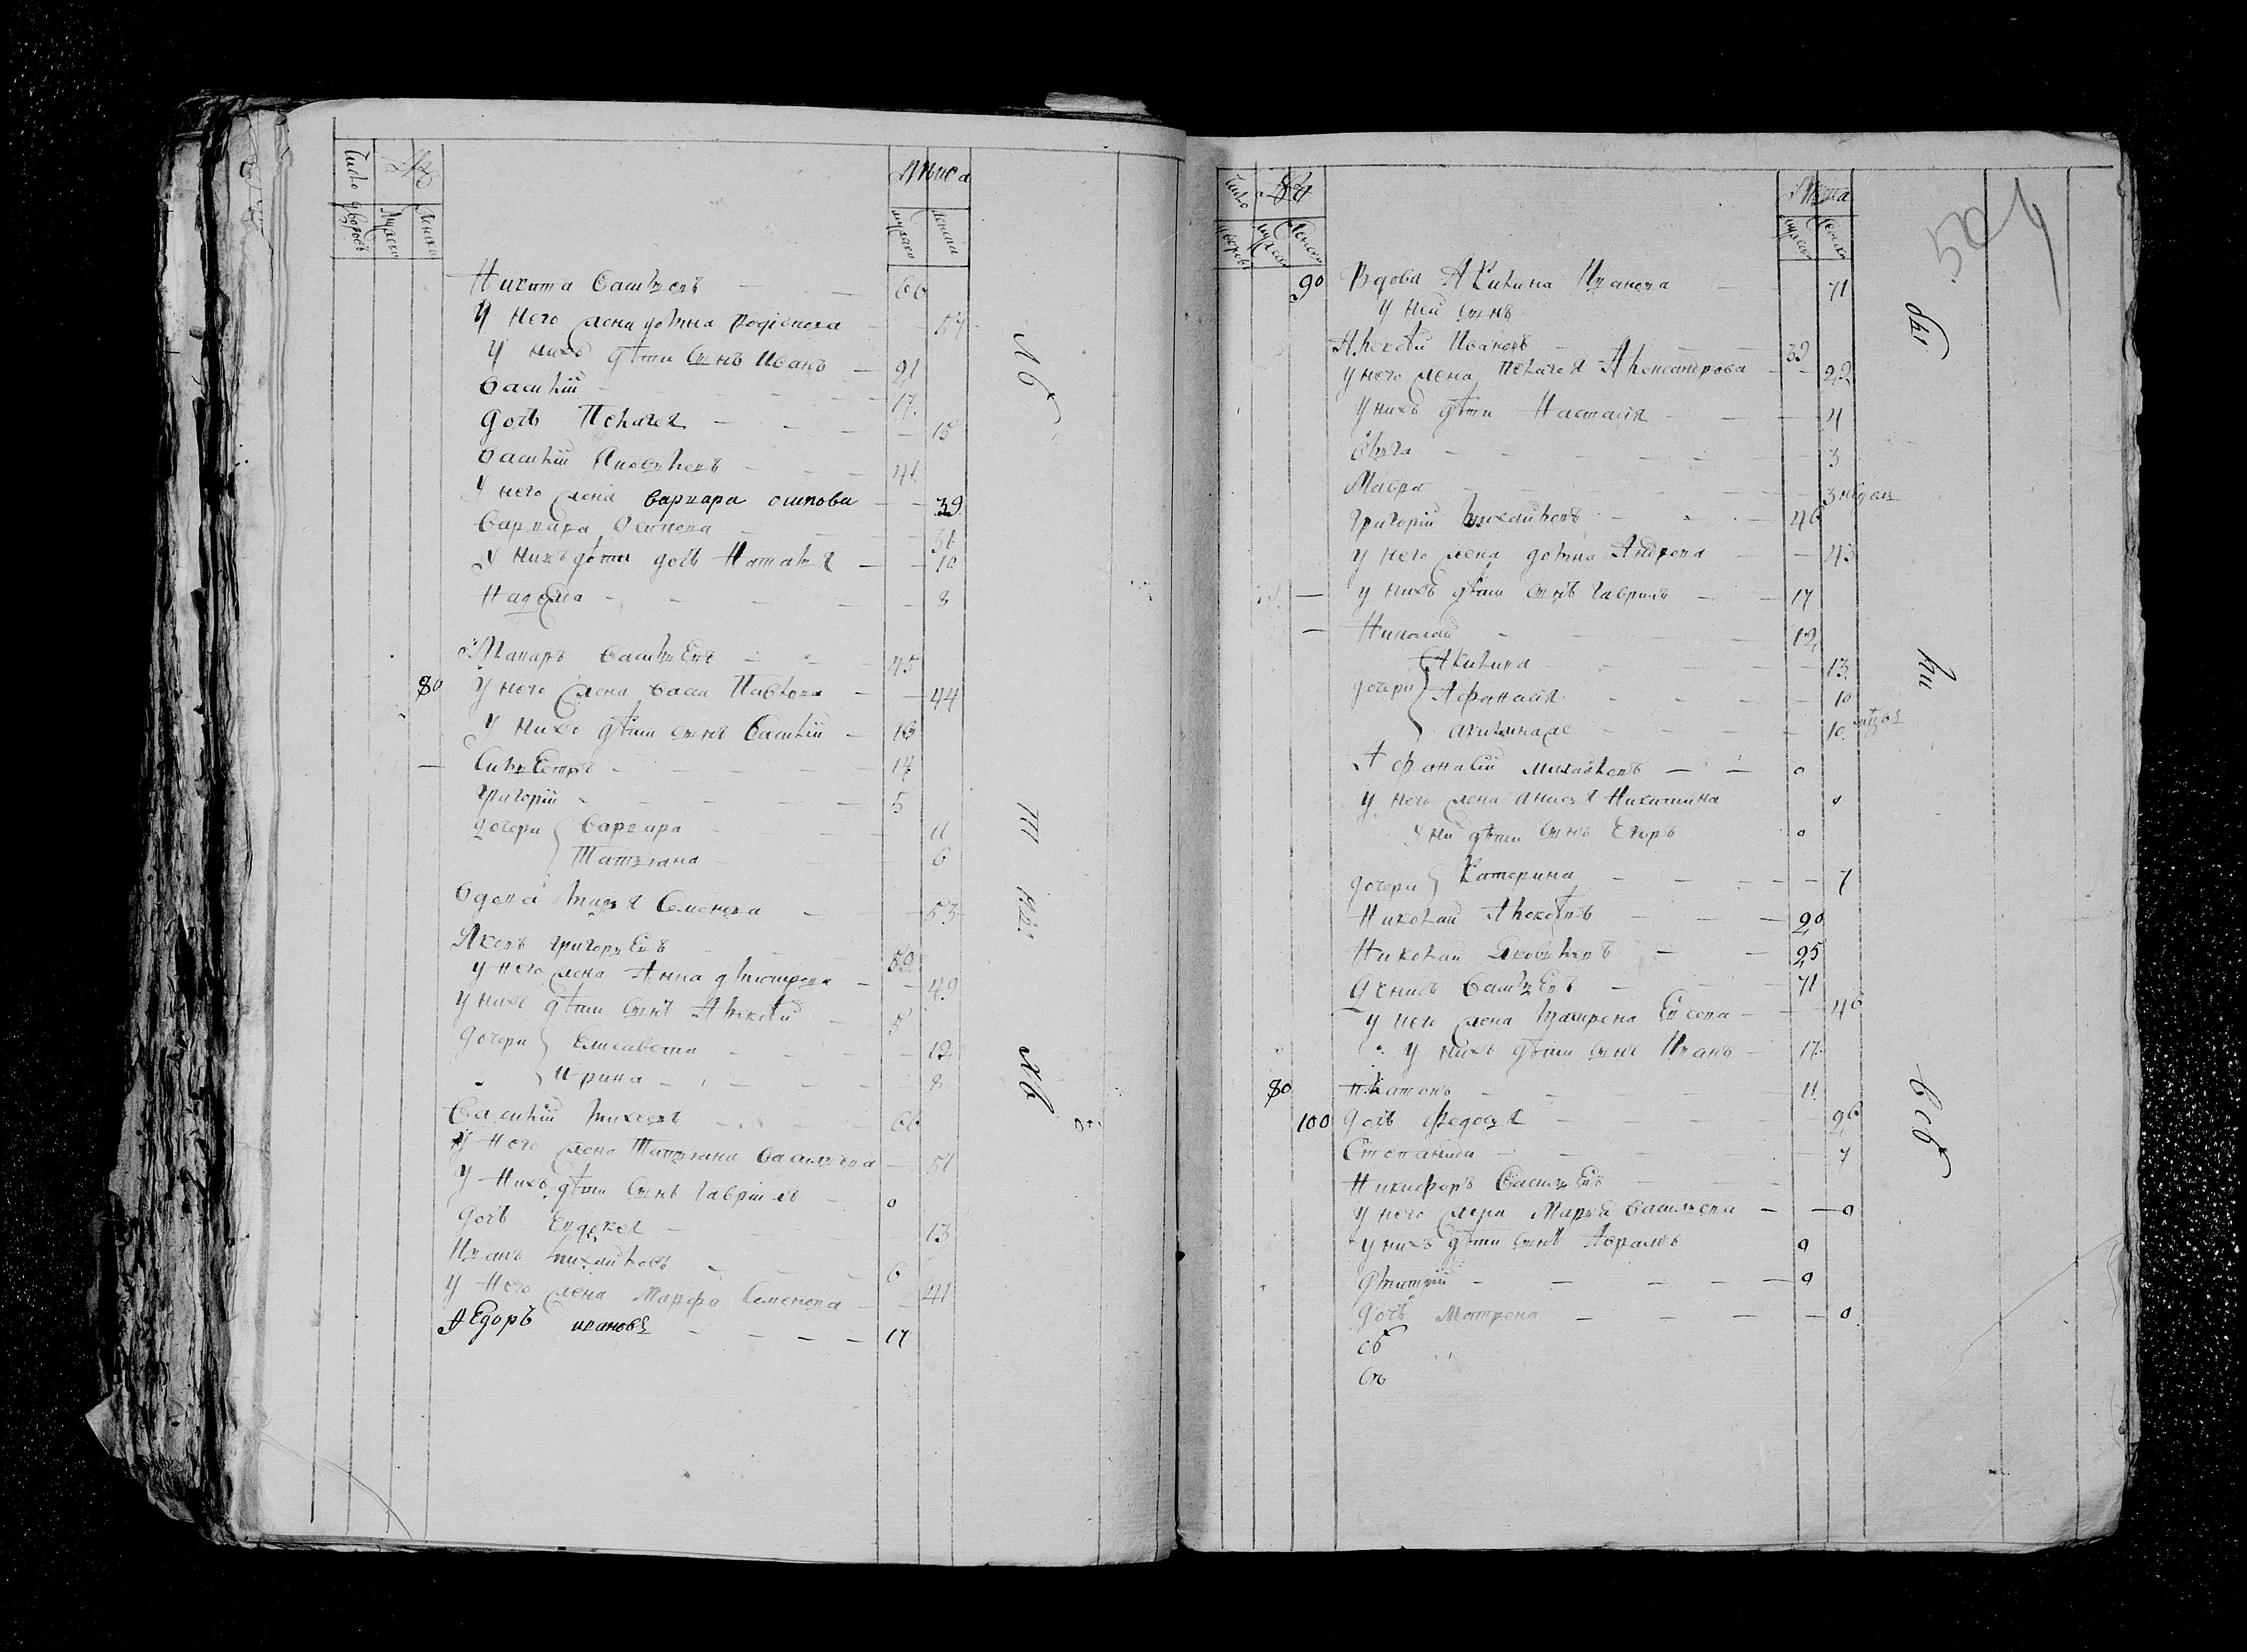 Число дворовъ
Мужска
Женска
Лѣта
мужска
женска
Никита Васильевъ 66
У него жена домна Родіонова 54
У нихъ дѣти сынъ Иванъ 21
Василій 17
дочь Пелагея 15
Василій Яковлевъ 41
У него жена варвара осипова 39
Варвара Осипова 31
У нихъ дѣти дочь Наталья 10
Надежа 8
Макаръ Васильевъ 45
80 У него жена Васса Павлова 44
У нихъ дѣти сынъ Василій 16
Сильвестръ 14
Григорій 5
дочери Варвара 11
Татьяна 6
Вдова Семенова 53
Яковъ Григорьевъ 50
У него жена Анна дмитрева 49
У нихъ дѣти сынъ Алексѣй 5
дочери Елисавета 12
Ирина 8
Василій Михеевъ 66
У него жена Татьяна Васильева 51
У нихъ дѣти сынъ Гавріилъ 0
дочь Евдокея 13
Иванъ Михайловъ 6
У него жена Марфа Семенова 41
Ѳедоръ ивановъ 17
504
Число дворовъ
Мужска
Женска
Лѣта
мужска
женска
90 Вдова Акилина Иванова 71
У ней сынъ
Алексѣй Ивановъ 39
У него жена Пелагея Александрова 22
У нихъ дѣти Настасья 4
Ольга 3
Мавра 3 недель
Григорій Михайловъ 46
У него жена домна Андрева 43
У нихъ дѣти сынъ Гаврила 17
Николай 12
дочери Акилина 13
Афанасія 10
акилина же 10
Афанасій михайловъ 0
У него жена анисья Никитина 0
У ни дѣти сынъ Егоръ 0
дочери Катерина 7
Николай Алексѣевъ 20
Николай Яковлевъ 25
Денисъ Васильевъ 71
У него жена Матрена Евсеева 46
У нихъ дѣти сынъ Иванъ 17
80 Платонъ 11
100 дочь Федосья 26
Степанида 7
Никифоръ Васильевъ
У него жена Марья Васильева 0
У нихъ дѣти сынъ Абрамъ 0
дмитрій 0
дочь Матрена 0